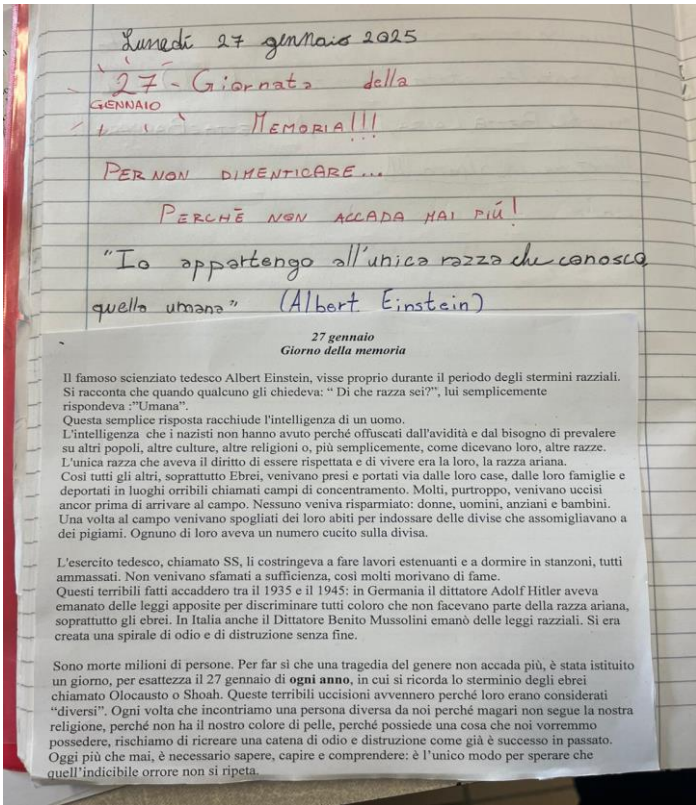 Lunedì 27 gennaio 2025
27 - Giornata della
GENNAIO
MEMORIA!!!
PER NON DIMENTICARE...
PERCHÉ NON ACCADA MAI PIÚ!
"Io appartengo all'unica razza che conosco,
quella umana" (Albert Einstein)
27 gennaio
Giorno della memoria
Il famoso scienziato tedesco Albert Einstein, visse proprio durante il periodo degli stermini razziali.
Si racconta che quando qualcuno gli chiedeva: “ Di che razza sei?”, lui semplicemente
rispondeva :”Umana”.
Questa semplice risposta racchiude l'intelligenza di un uomo.
L'intelligenza che i nazisti non hanno avuto perché offuscati dall'avidità e dal bisogno di prevalere
su altri popoli, altre culture, altre religioni o, più semplicemente, come dicevano loro, altre razze.
L'unica razza che aveva il diritto di essere rispettata e di vivere era la loro, la razza ariana.
Così tutti gli altri, soprattutto Ebrei, venivano presi e portati via dalle loro case, dalle loro famiglie e
deportati in luoghi orribili chiamati campi di concentramento. Molti, purtroppo, venivano uccisi
ancor prima di arrivare al campo. Nessuno veniva risparmiato: donne, uomini, anziani e bambini.
Una volta al campo venivano spogliati dei loro abiti per indossare delle divise che assomigliavano a
dei pigiami. Ognuno di loro aveva un numero cucito sulla divisa.
L'esercito tedesco, chiamato SS, li costringeva a fare lavori estenuanti e a dormire in stanzoni, tutti
ammassati. Non venivano sfamati a sufficienza, così molti morivano di fame.
Questi terribili fatti accaddero tra il 1935 e il 1945: in Germania il dittatore Adolf Hitler aveva
emanato delle leggi apposite per discriminare tutti coloro che non facevano parte della razza ariana,
soprattutto gli ebrei. In Italia anche il Dittatore Benito Mussolini emanò delle leggi razziali. Si era
creata una spirale di odio e di distruzione senza fine.
Sono morte milioni di persone. Per far sì che una tragedia del genere non accada più, è stata istituito
un giorno, per esattezza il 27 gennaio di ogni anno, in cui si ricorda lo sterminio degli ebrei
chiamato Olocausto o Shoah. Queste terribili uccisioni avvennero perché loro erano considerati
“diversi”. Ogni volta che incontriamo una persona diversa da noi perché magari non segue la nostra
religione, perché non ha il nostro colore di pelle, perché possiede una cosa che noi vorremmo
possedere, rischiamo di ricreare una catena di odio e distruzione come già è successo in passato.
Oggi più che mai, è necessario sapere, capire e comprendere: è l’unico modo per sperare che
quell’indicibile orrore non si ripeta.